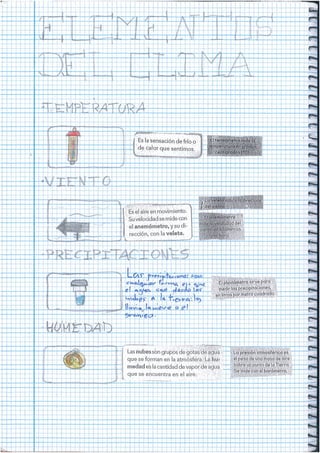 ELEMENTOS
DEL CLIMA
·TEMPERATURA
Es la sensación de frío o
de calor que sentimos.
El termómetro mide la
·VIENTO
Es el aire en movimiento.
Su velocidad se mide con
el anemómetro, y su di-
rección, con la veleta.
·PRECIPITACIONES
Las precipitaciones son
cualquier forma en que
el agua cae desde las
nubes a la tierra: la
lluvia, la nieve o el
granizo.
El pluviómetro sirve para
medir las precipitaciones,
en litros por metro cuadrado.
HUMEDAD
Las nubes son grupos de gotas de agua
que se forman en la atmósfera. La hu-
medad es la cantidad de vapor de agua
que se encuentra en el aire.
La presión atmosférica es
el peso de una masa de aire
sobre un punto de la Tierra.
Se mide con el barómetro.